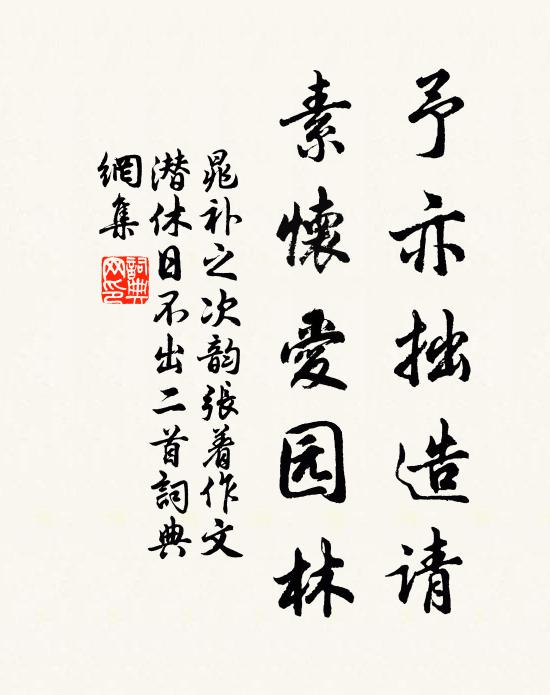 予亦拙造请
素懷愛园林
晁补之次韵張著作文
潜休日不出二首詞典
網集
詞典網印